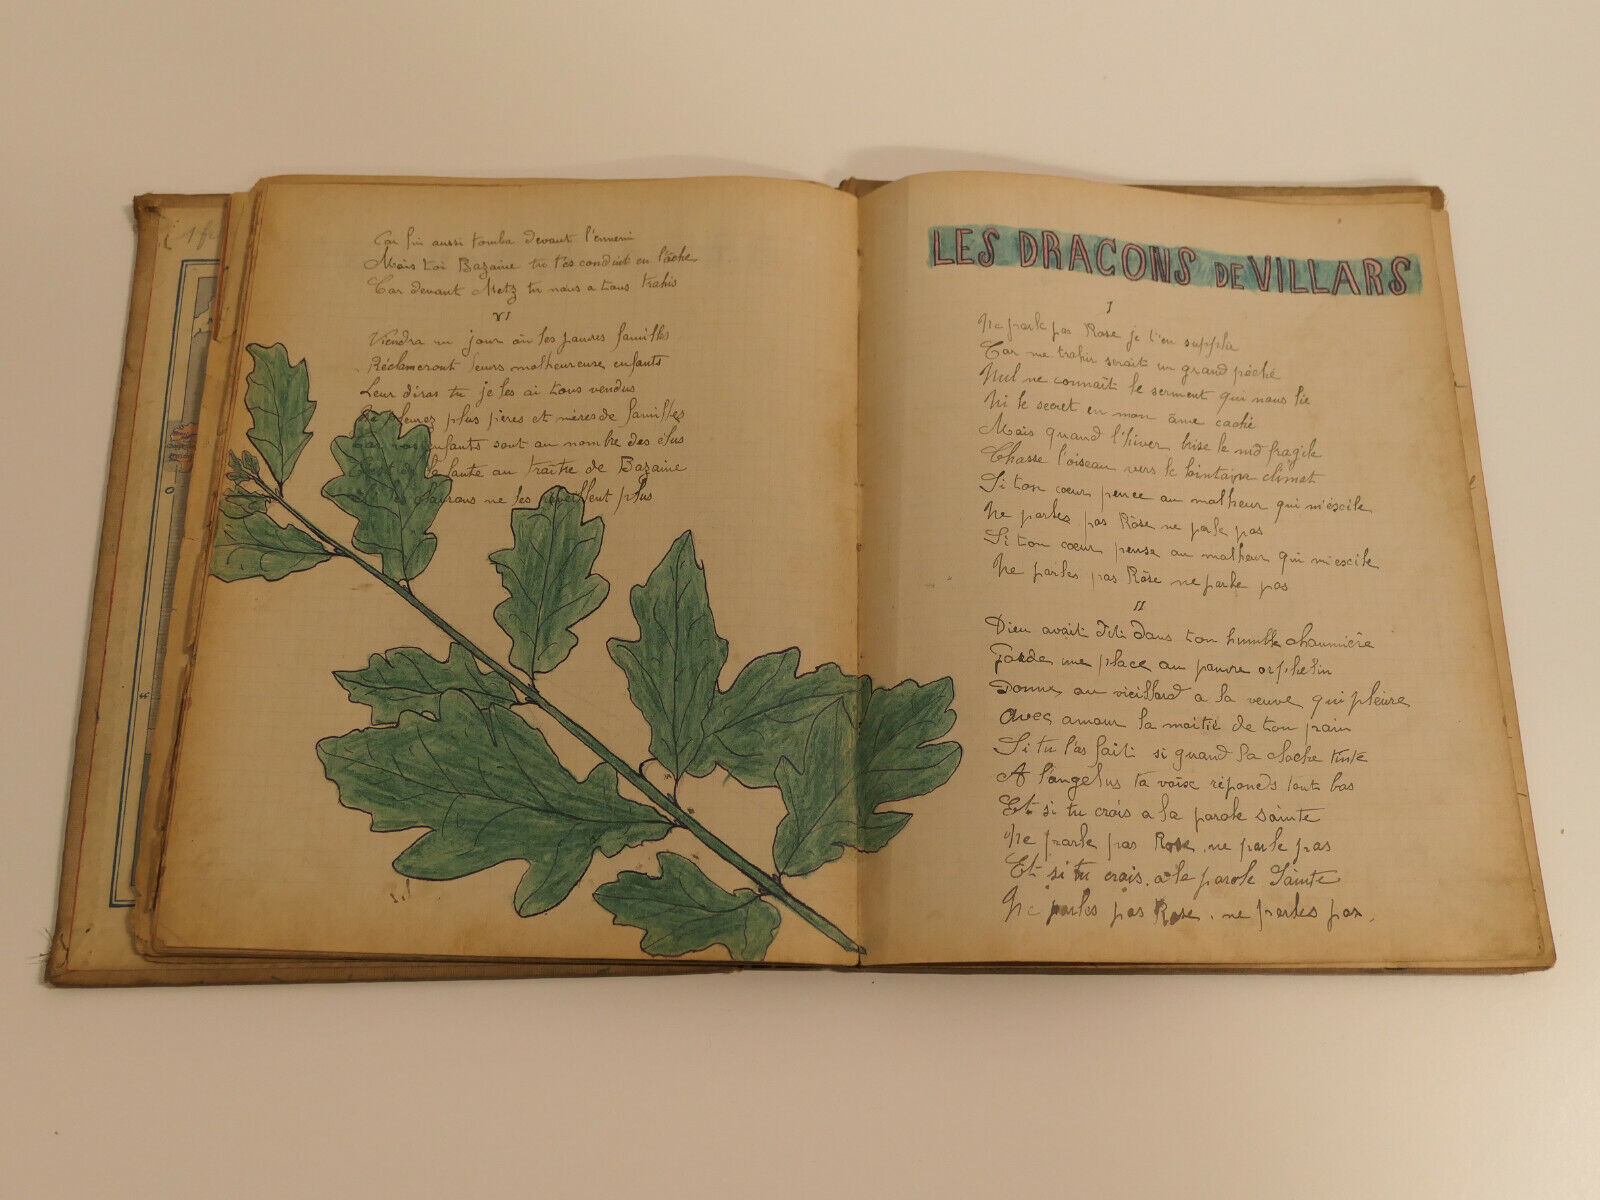 1 fr
Car lui aussi tomba devant l'ennemi
Mais toi Bazaine tu t'es conduit en lâche
Car devant Metz tu nous a tous trahis
VI
Viendra un jour où les pauvres familles
Réclameront leurs malheureuse enfants
Leur diras tu je les ai tous vendus
Ne pleurez plus pères et mères de familles
Car vos enfants sont au nombre des élus
C'est de la faute au traître de Bazaine
Si les clairons ne les réveillent plus
LES DRACONS DE VILLARS
I
Ne parle pas Rose je t'en suppla
Car me trahir serait un grand péché
Nul ne connaît le serment qui nous lie
Ni le secret en mon âme caché
Mais quand l'hiver brise le nid fragile
Chasse l'oiseau vers le climat
Si ton coeur pence au malheur qui m'escile
Ne parles pas Rose ne parle pas
Si ton coeur pense au malheur qui m'escile
Ne parles pas Rose ne parle pas
II
Dieu avait dit dans ton humble chaumière
Garde une place au pauvre orphelin
Donne au vieillard a la veuve qui pleure
avec amour la moitié de ton pain
Si tu l'as fait si quand la cloche tinte
A l'angelus ta voix réponds tout bas
Et si tu crois a la parole sainte
Ne parle pas Rose, ne parle pas
Et si tu crois, a la parole Sainte
Ne parles pas Rose, ne parles pas.